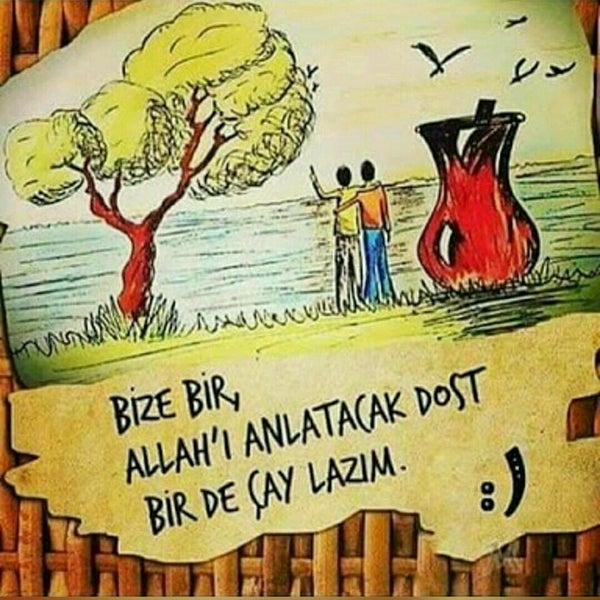 BİZE BİR,
ALLAH'I ANLATACAK DOST
BİR DE ÇAY LAZIM.
:)